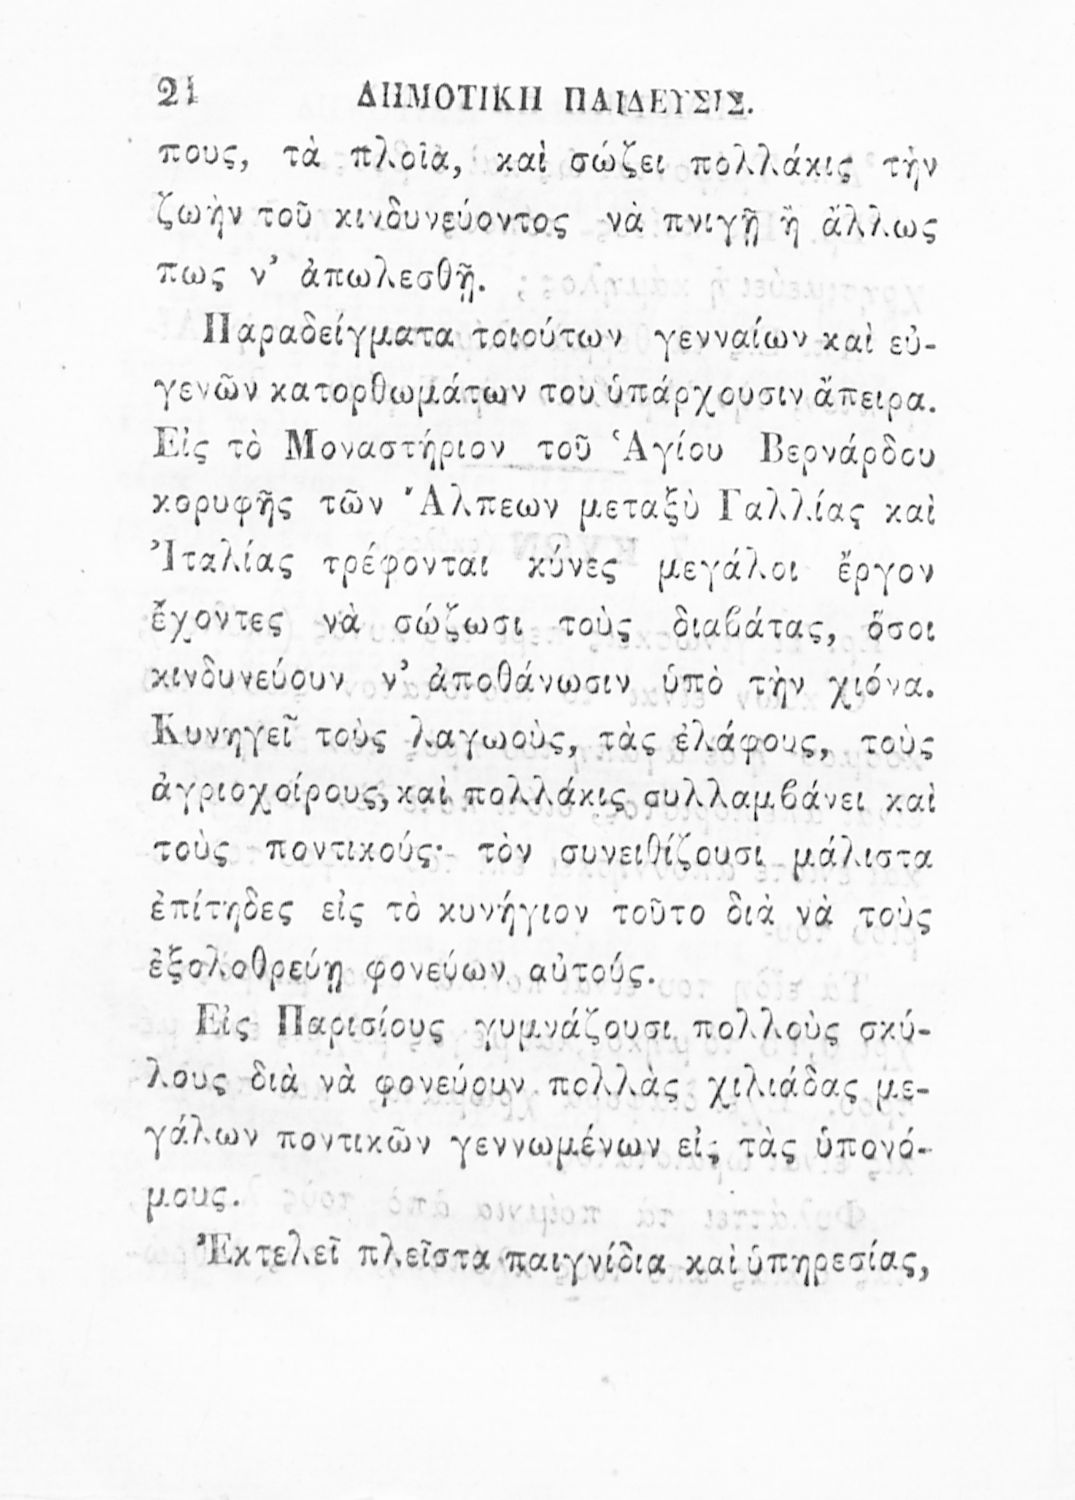 21 ΔΗΜΟΤΙΚΗ ΠΑΙΔΕΥΣΙΣ.
πους, τὰ πλοῖα, καὶ σώζει πολλάκις τὴν
ζωὴν τοῦ κινδυνεύοντος νὰ πνιγῇ ἢ ἄλλως
πως ν’ ἀπωλεσθῇ.
Παραδείγματα τοιούτων γενναίων καὶ εὐ-
γενῶν κατορθωμάτων του ὑπάρχουσιν ἄπειρα.
Εἰς τὸ Μοναστήριον τοῦ Ἁγίου Βερνάρδου
κορυφῆς τῶν Ἄλπεων μεταξὺ Γαλλίας καὶ
Ἰταλίας τρέφονται κύνες μεγάλοι ἔργον
ἔχοντες νὰ σώζωσι τοὺς διαβάτας, ὅσοι
κινδυνεύουν ν’ ἀποθάνωσιν ὑπὸ τὴν χιόνα.
Κυνηγεῖ τοὺς λαγωοὺς, τὰς ἐλάφους, τοὺς
ἀγριοχοίρους, καὶ πολλάκις συλλαμβάνει καὶ
τοὺς ποντικούς· τὸν συνειθίζουσι μάλιστα
ἐπίτηδες εἰς τὸ κυνήγιον τοῦτο διὰ νὰ τοὺς
ἐξολοθρεύῃ φονεύων αὐτούς.
Εἰς Παρισίους γυμνάζουσι πολλοὺς σκύ-
λους διὰ νὰ φονεύουν πολλὰς χιλιάδας με-
γάλων ποντικῶν γεννωμένων εἰς τὰς ὑπονό-
μους.
Ἐκτελεῖ πλεῖστα παιγνίδια καὶ ὑπηρεσίας,